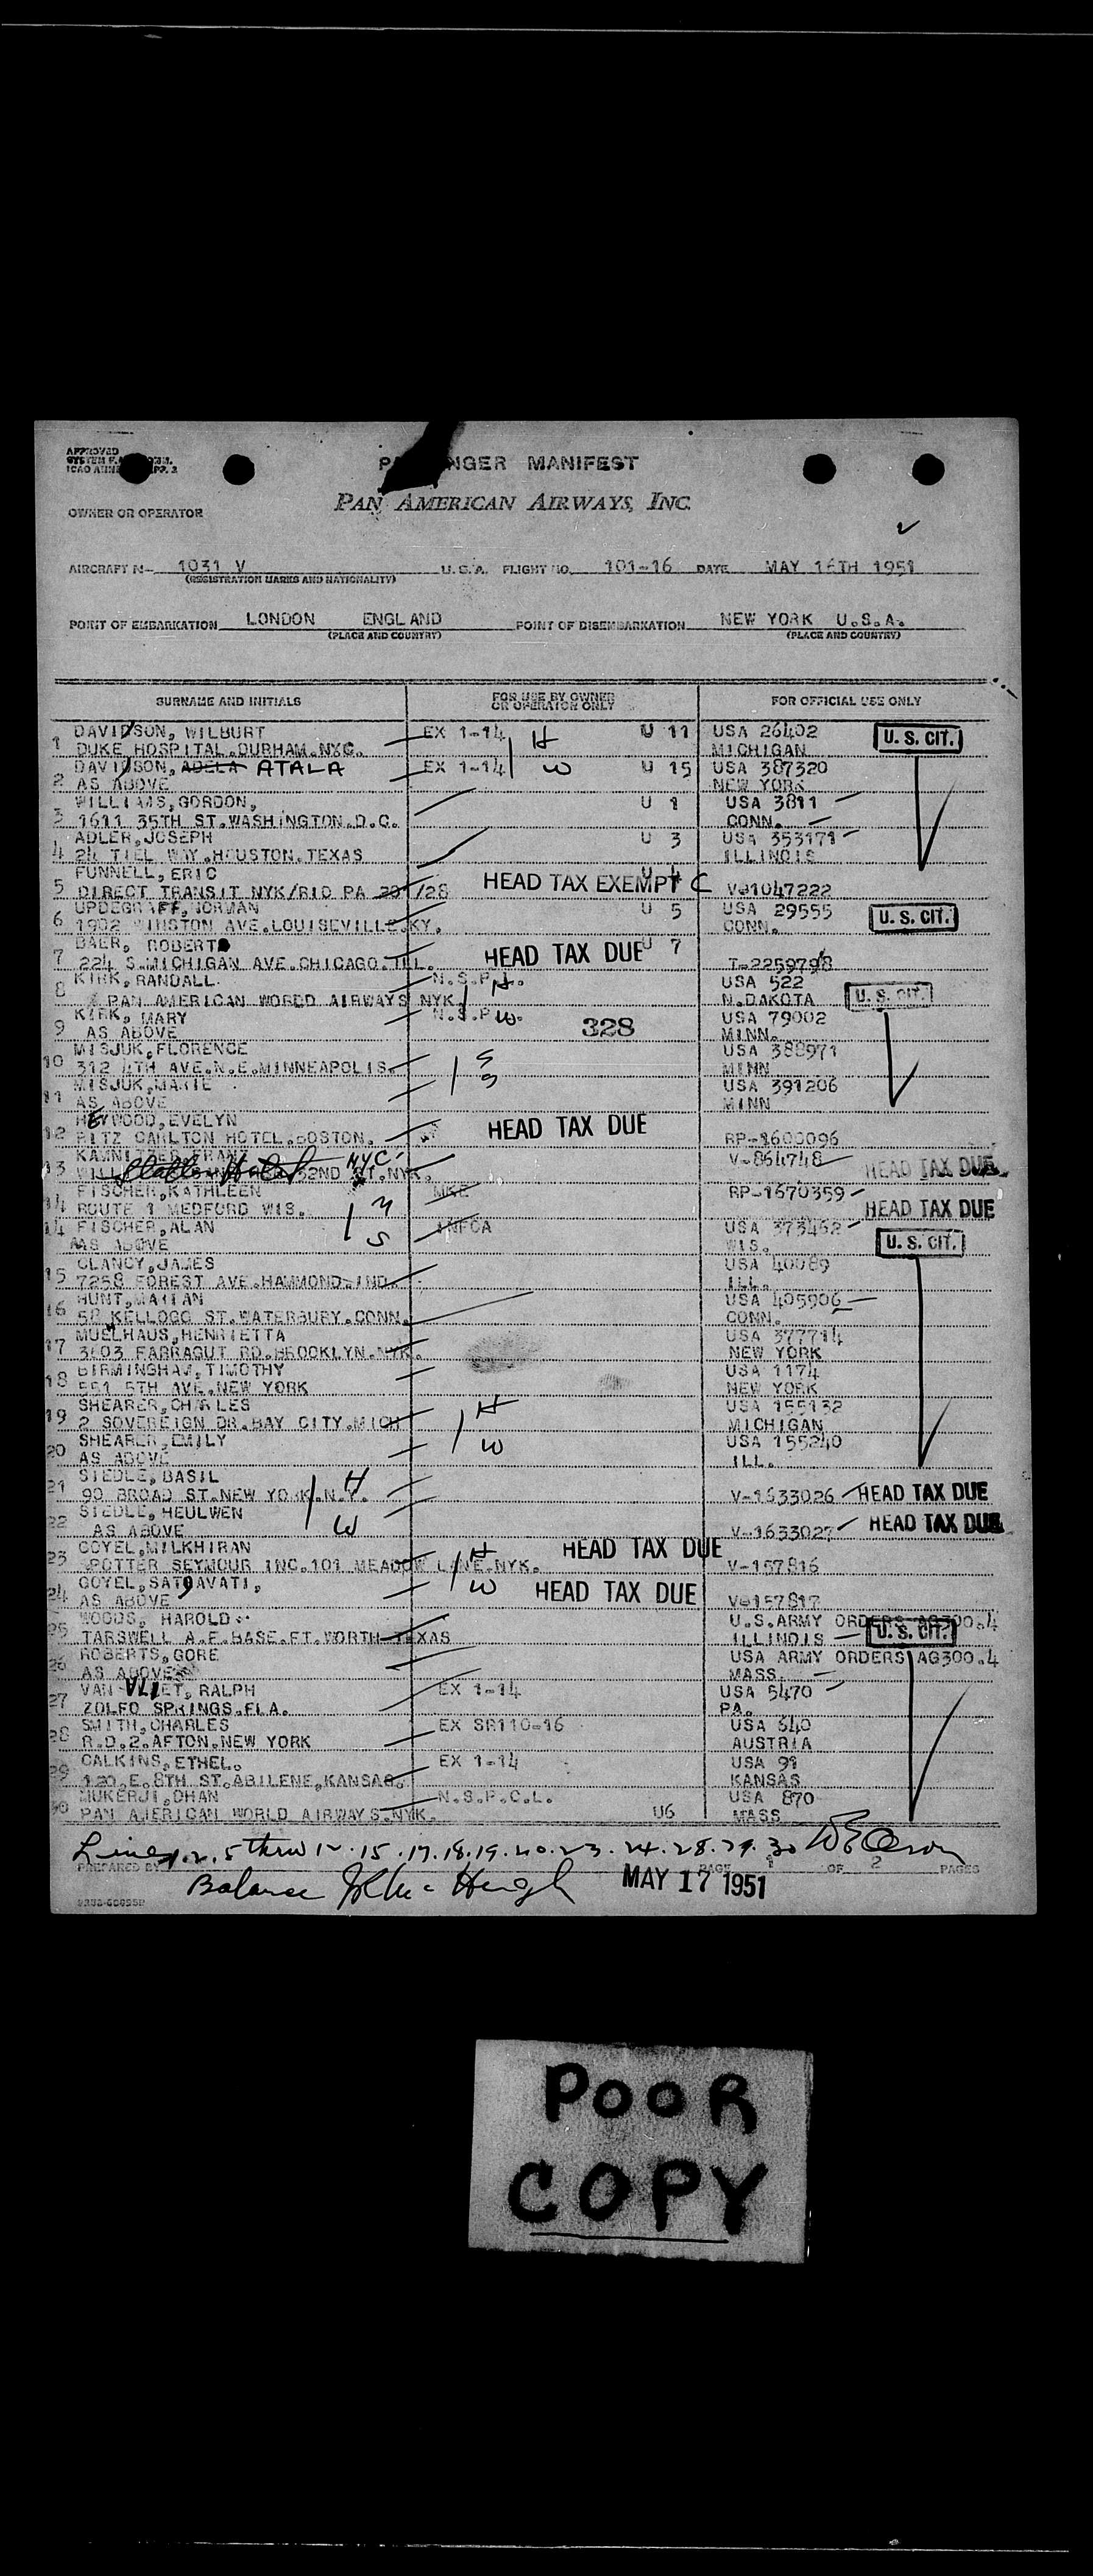 APPROVED
PASSENGER MANIFEST
PAN AMERICAN AIRWAYS, INC
OWNER OR OPERATOR
AIRCRAFT N— 1031 V U.S.A. FLIGHT NO. 101-16 DATE MAY 16TH 1951
(REGISTRATION MARKS AND NATIONALITY)
POINT OF EMBARKATION LONDON ENGLAND POINT OF DISEMBARKATION NEW YORK U.S.A.
(PLACE AND COUNTRY) (PLACE AND COUNTRY)
SURNAME AND INITIALS FOR USE BY OWNER OR OPERATOR ONLY FOR OFFICIAL USE ONLY
DAVIDSON, WILBURT EX 1-14 H U 11 USA 26402 U. S. CIT.
1 DUKE HOSPITAL.DURHAM.NYC. MICHIGAN
DAVIDSON, ADELA ATALA EX 1-14 W U 15 USA 387320
2 AS ABOVE NEW YORK
WILLIAMS,GORDON, U 1 USA 3811
3 1611 35TH ST.WASHINGTON.D.C. CONN.
ADLER,JOSEPH U 3 USA 353171
4 24 TIEL WAY.HOUSTON.TEXAS ILLINOIS
FUNNELL, ERIC HEAD TAX EXEMPT C U 4
5 DIRECT TRANSIT NYK/RIO PA 201/28 V-1047222
UPDEGRAFF,NORMAN U 5 USA 29555 U. S. CIT.
6 1902 WINSTON AVE.LOUISEVILLE.KY. CONN.
BAER, ROBERT HEAD TAX DUE U 7
7 224 S.MICHIGAN AVE.CHICAGO.ILL. T-2259798
KIRK,RANDALL. H. USA 522
8 PAN AMERICAN WORLD AIRWAYS NYK. N.DAKOTA U. S. CIT.
KIRK, MARY W. 328 USA 79002
9 AS ABOVE MINN.
MISJUK,FLORENCE S USA 388971
10 312 4TH AVE.N.E.MINNEAPOLIS. MINN
MISJUK,MARIE S USA 391206
11 AS ABOVE MINN
HEYWOOD,EVELYN HEAD TAX DUE
12 RITZ CARLTON HOTEL.BOSTON. RP-1600096
NYC. V-864748 HEAD TAX DUE
13 Statler Hotel 52ND ST.NYK.
FISCHER,KATHLEEN M RP-1670359 HEAD TAX DUE
14 ROUTE 1 MEDFORD WIS.
14 FISCHER,ALAN INFCA USA 373462
AS ABOVE S WIS. U. S. CIT.
CLANCY,JAMES USA 40089
15 7258 FOREST AVE.HAMMOND.IND. ILL.
HUNT,MAITAN USA 405906
16 58 KELLOGG ST.WATERBURY.CONN. CONN.
MUEHLHAUS,HENRIETTA USA 377714
17 3603 FARRAGUT RD.BROOKLYN.NYK. NEW YORK
BIRMINGHAM,TIMOTHY USA 1174
18 551 5TH AVE.NEW YORK NEW YORK
SHEARER,CHARLES H USA 155132
19 2 SOVEREIGN DR.BAY CITY.MICH MICHIGAN
SHEARER,EMILY W USA 155240
20 AS ABOVE ILL.
SIEDLE,BASIL H
21 90 BROAD ST.NEW YORK.N.Y. V-1633026 HEAD TAX DUE
SIEDLE, HEULWEN W
22 AS ABOVE V-1633027 HEAD TAX DUE
GOYEL,MILKHIRAN H HEAD TAX DUE
23 POTTER SEYMOUR INC.101 MEADOW LANE.NYK. V-157816
GOYEL,SATYAVATI, W HEAD TAX DUE
24 AS ABOVE V-157817
WOODS, HAROLD U.S.ARMY ORDERS AG300.4
25 TARSWELL A.F.BASE.FT.WORTH TEXAS ILLINOIS U. S. CIT.
ROBERTS,GORE USA ARMY ORDERS AG300.4
26 AS ABOVE MASS.
VAN VLIET, RALPH EX 1-14 USA 5470
27 ZOLFO SPRINGS.FLA. PA.
SMITH,CHARLES EX SR110-16 USA 640
28 R.D.2.AFTON.NEW YORK AUSTRIA
CALKINS,ETHEL. EX 1-14 USA 91
29 120.E.8TH ST.ABILENE,KANSAS. KANSAS
MUKERJI,DHAN N.S.P.C.L. USA 870
30 PAN AMERICAN WORLD AIRWAYS.NYK. U6 MASS
Lines 1.2.5 thru 12.15.17.18.19.20.23.24.28.29.30
PREPARED BY PAGE 1 OF 2 PAGES
Balance
MAY 17 1951
POOR
COPY